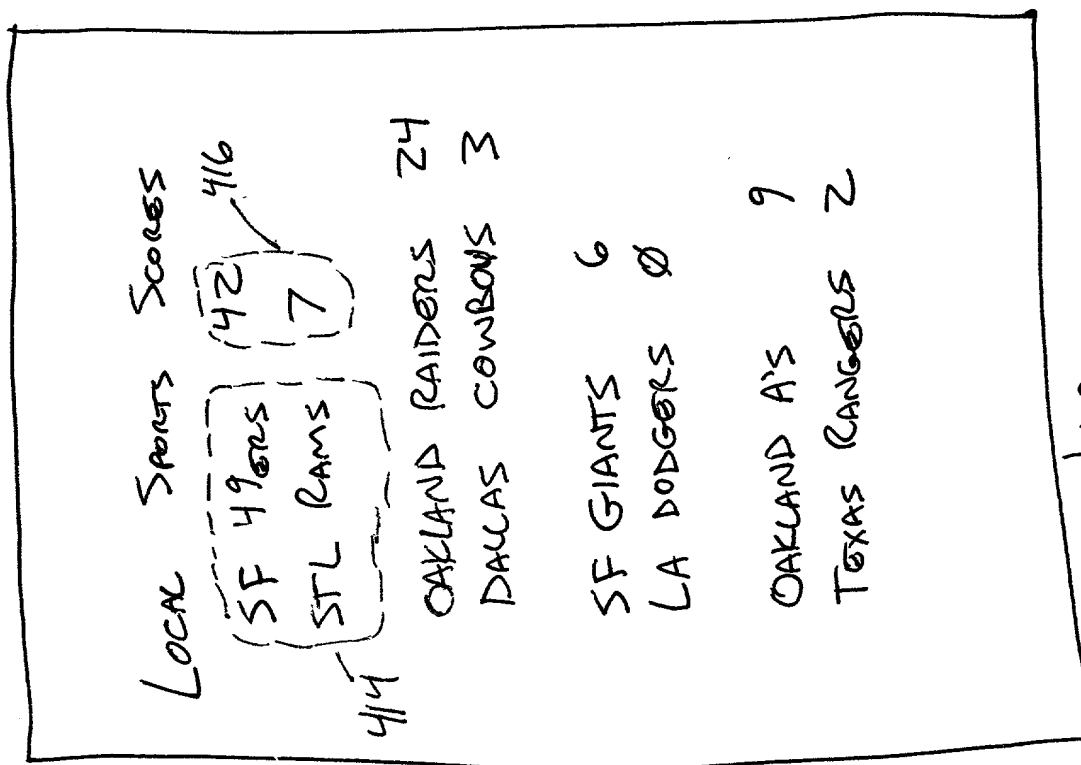 LOCAL SPORTS SCORES
416
SF 49ERS 42
STL RAMS 7
414
OAKLAND RAIDERS 24
DALLAS COWBOYS 3
SF GIANTS 6
LA DODGERS 0
OAKLAND A'S 9
TEXAS RANGERS 2